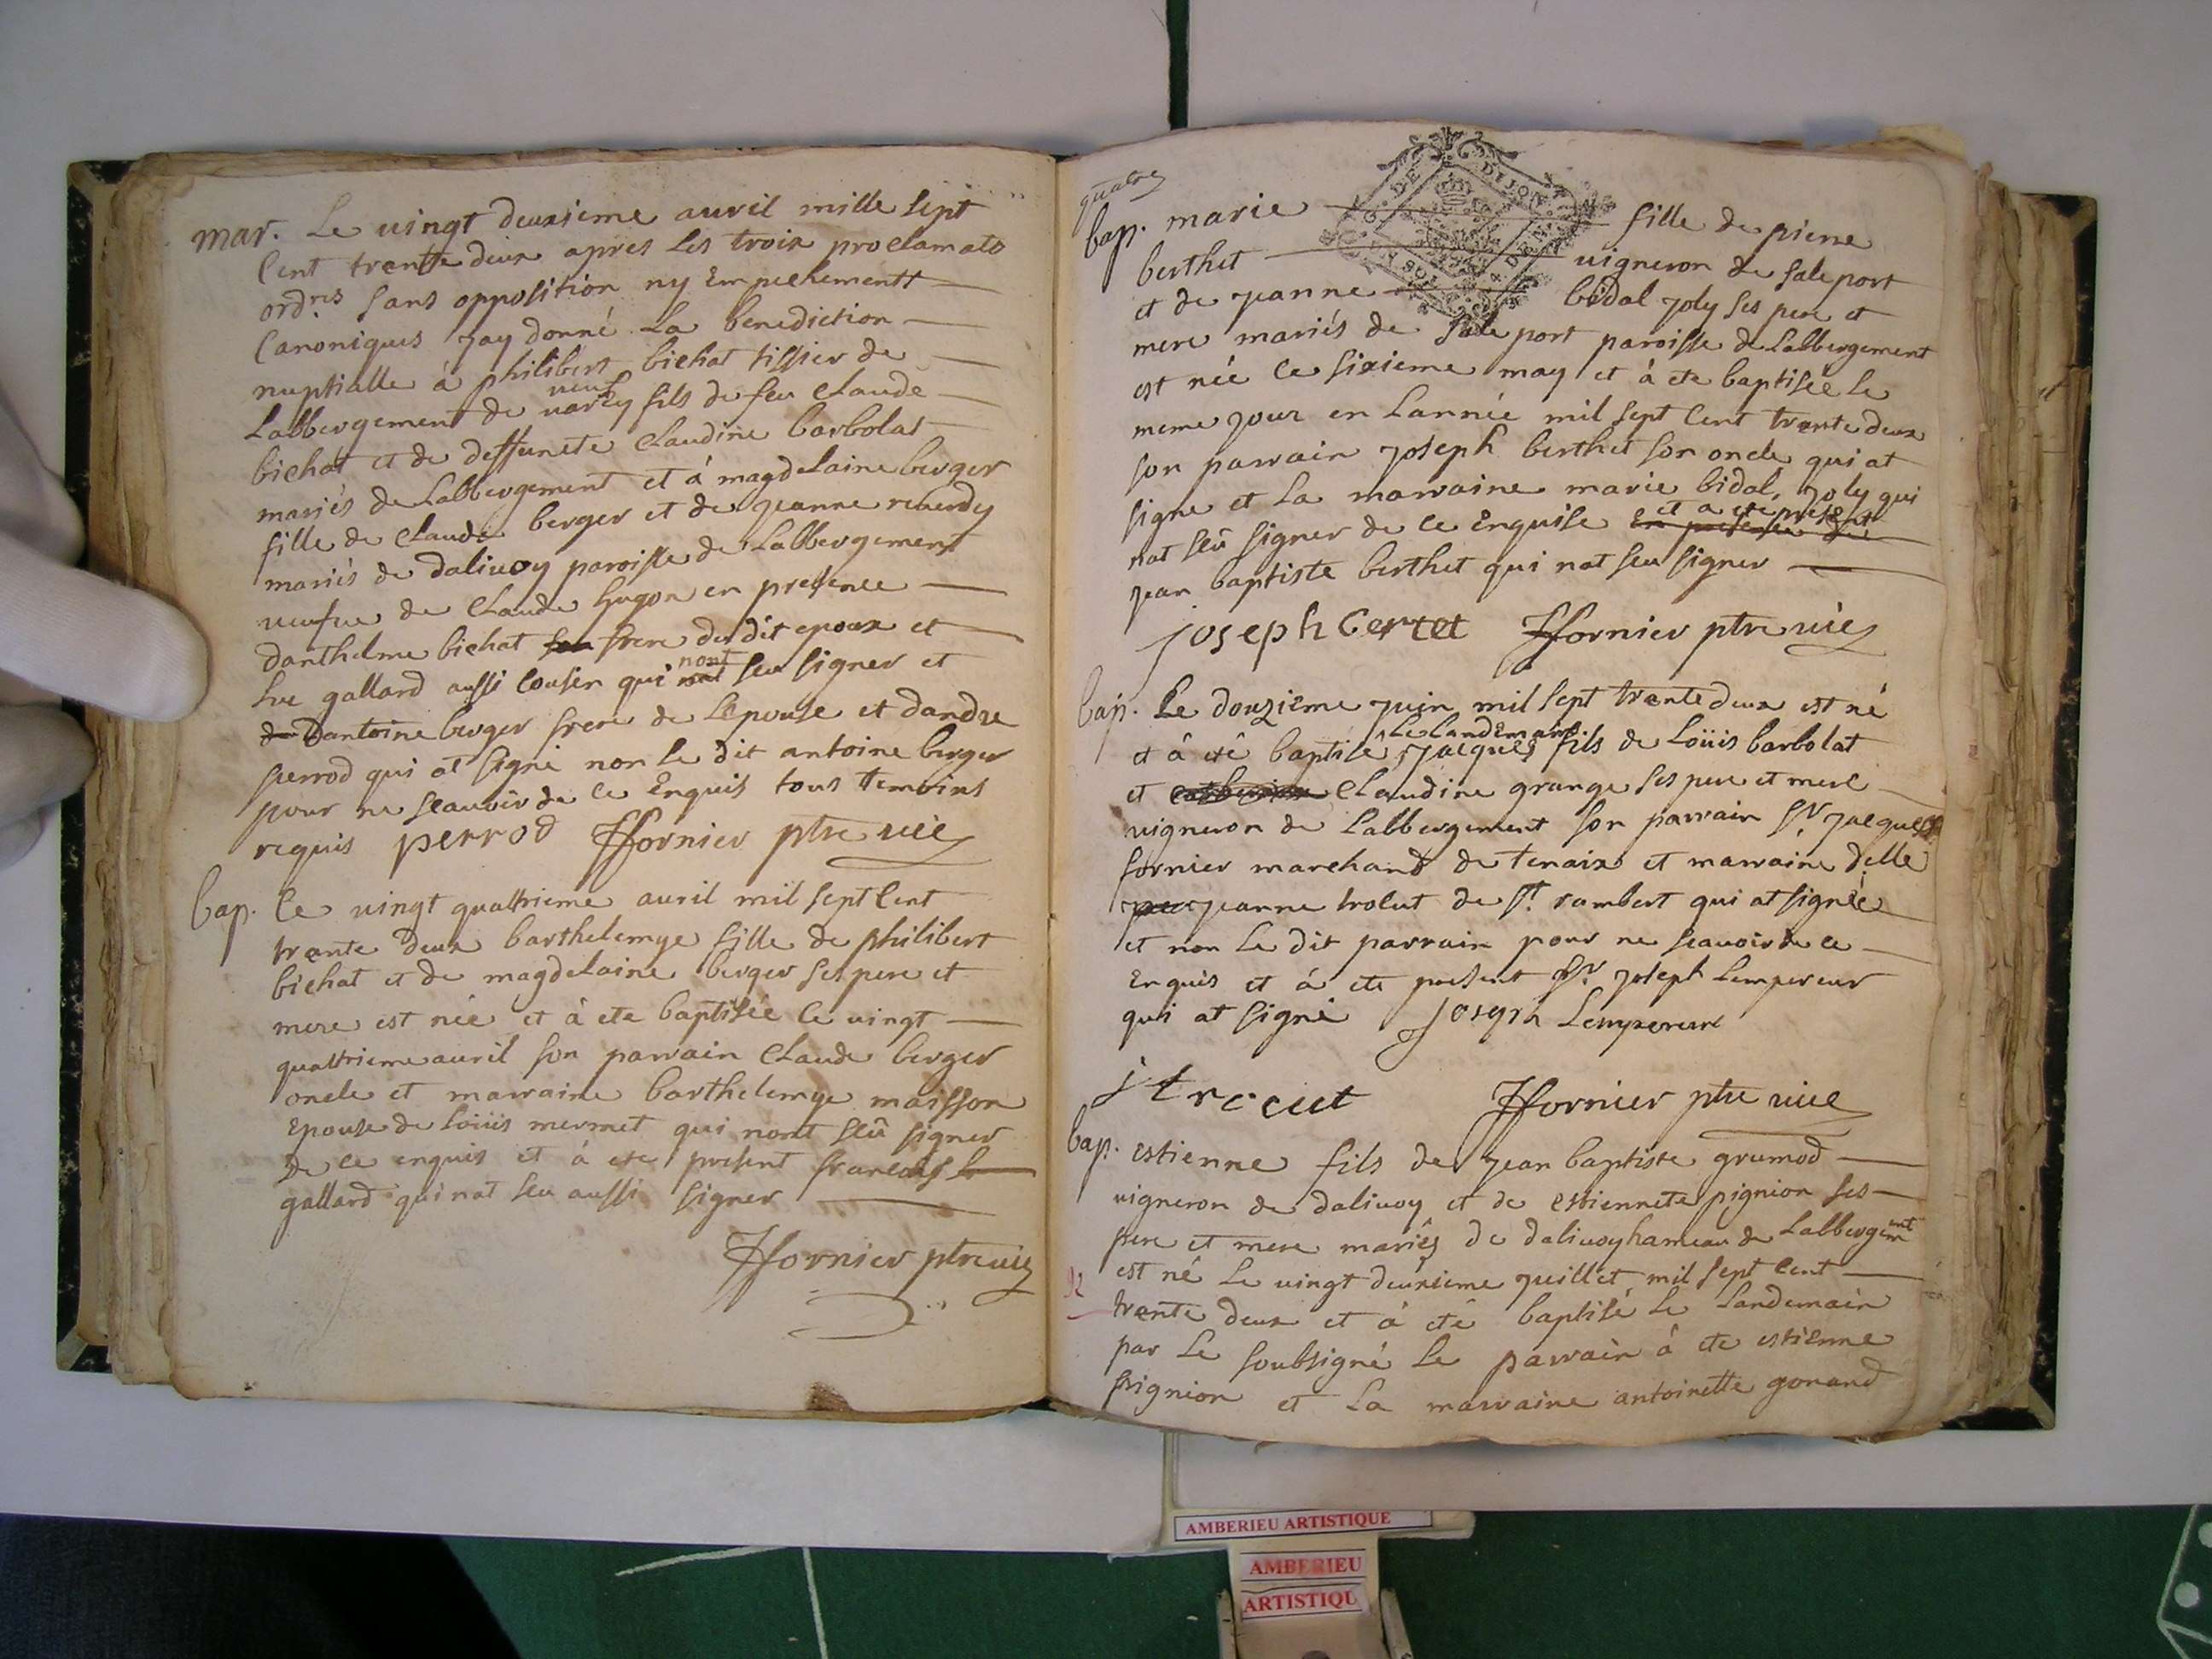 mar. Le vingt deuxieme auvril mille sept
Cent trente deux apres les troix proclamato
ordres sans opposition ny Empechementt
Canoniques Jay donné La benediction
nuptialle à philibert bichat tissier de
Labbergement de varey veuf fils de feu Claude
bichat et de deffuncte Claudine barbolat
mariés de Labbergement et à magdelaine berger
fille de Claude berger et de Jeanne reverdy
mariés de dalivoy paroisse de Labbergement
veufve de Claude hugon en presence
danthelme bichat frere du dit epoux et
luc gallard aussi Cousin qui nont seu signer et
Dantoine berger frere de Lepouse et dandre
perrod qui at signé non le dit antoine berger
pour ne scauvoir de ce Enquis tous temoins
requis perrod Ffornier ptre vic
bap. Ce vingt quattrieme auvril mil sept Cent
trente deux barthelemye fille de philibert
bichat et de magdelaine berger ses pere et
mere est née et à ete baptisée Ce vingt
quattrieme auvril son parrain Claude berger
oncle et marraine barthelemye maisson
Epouse de Loüis mermet qui nont seû signer
de ce enquis et à ete present francois
gallard qui nat seu aussi signer
Ffornier ptre vic
quatre
DE DIJON
bap. marie fille de pierre
berthet vigneron de saleport
et de Jeanne bidal Joly ses pere et
mere mariés de Sale port paroisse de Labbergement
est née Ce sixieme may et à ete baptisée le
meme jour en Lannée mil sept Cent trente deux
son parrain Joseph berthet son oncle qui at
signe et La marraine marie bidal, Joly qui
nat seû signer de ce Enquise et a ete present
Jean baptiste berthet qui nat seu signer
joseph Bertet Ffornier ptre vic
bap. Le douzieme Juin mil sept trente deux est né
et à eté baptisé Le Landemain Jacques fils de Loüis barbolat
et Claudine grange ses pere et mere
vigneron de Labbergement son parrain Sr. Jacques
fornier marchand de tenaix et marraine delle
Jeanne trolut de St. rambert qui at signée
et non Le dit parrain pour ne scauvoir de ce
Enquis et à ete present Sr. Joseph Lempereur
qui at signé Joseph Lempereur
Ffornier ptre vic
bap. estienne fils de Jean baptiste grumod
vigneron de dalivoy et de estiennete pignion ses
pere et mere mariés de dalivoy hameau de Labbergemt
est né Le vingt deuxieme Juillet mil sept Cent
trente deux et à eté baptisé Le Landemain
par Le soubsigné Le parrain à ete estienne
pignion et La marraine antoinette gonand
AMBERIEU ARTISTIQUE
AMBERIEU
ARTISTIQU